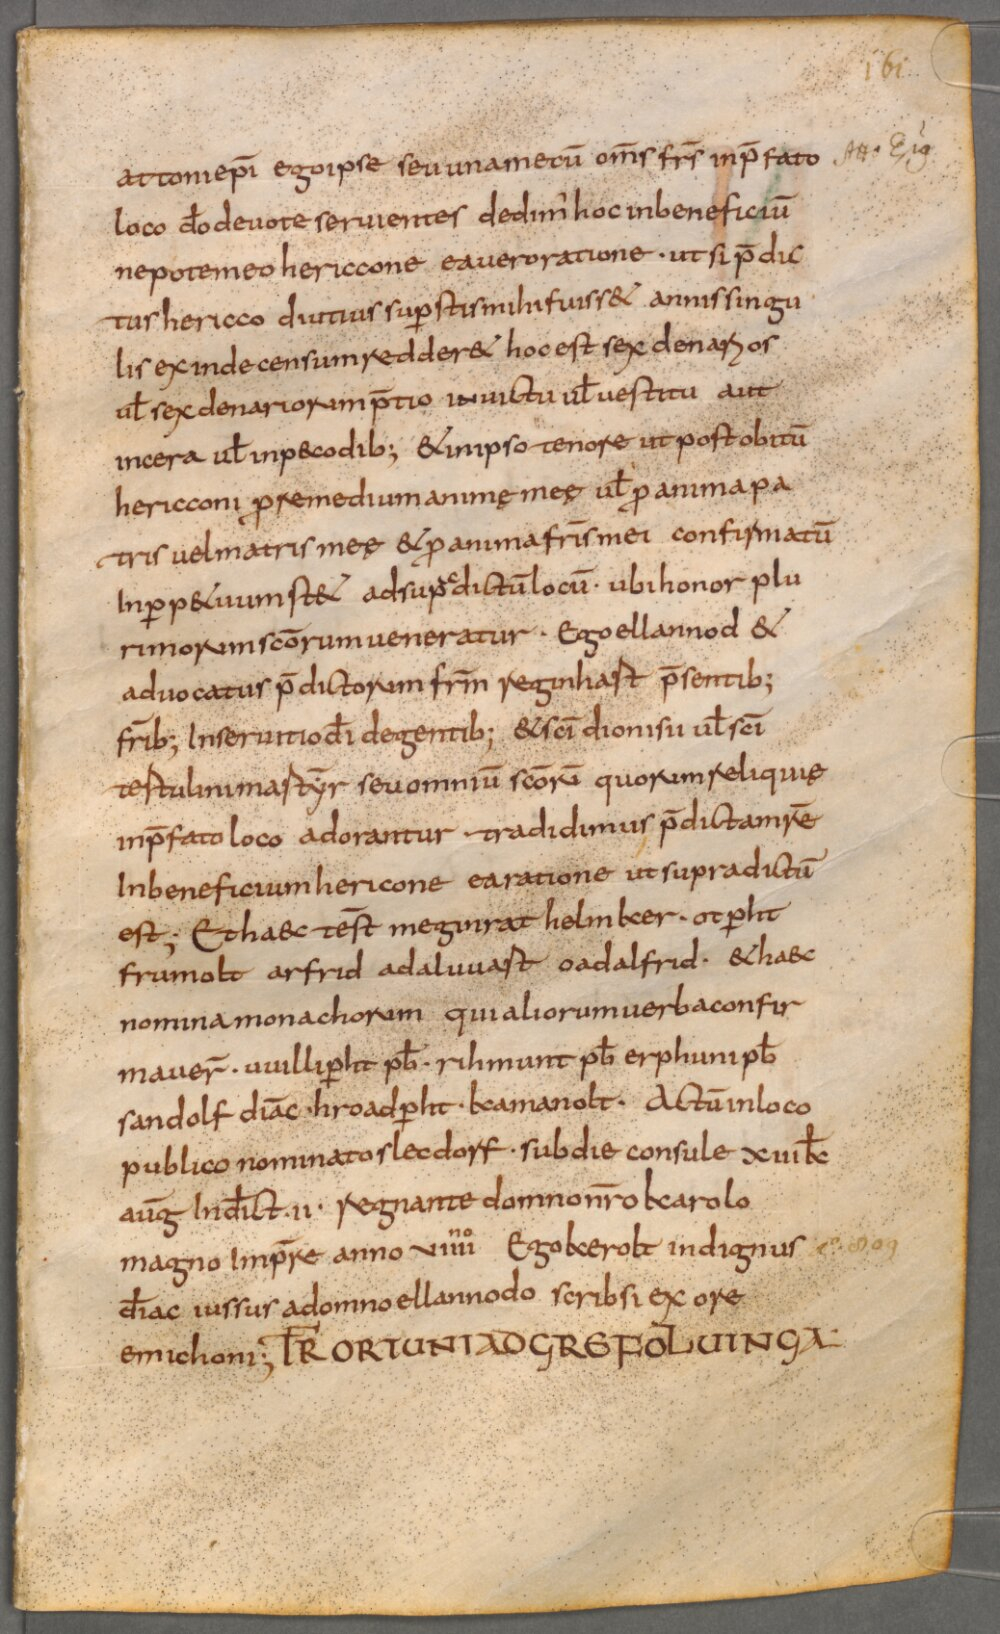 161
attoni ep̄i ego ipse seu una mecū om̄s fr̄s in p̄fato
loco d̄o devote servientes dedim᾽ hoc in beneficiū
nepote meo hericcone ea vero ratione · ut si p̄dic
tus hericco diutius sup̄stis mihi fuiss& annis singu
lis exinde censum redder& hoc est sex denarios
ul̄ sex denariorum p̄tio in uictu ul̄ uestitu aut
in cera ul̄ in p&codib; & in ipso tenore ut post obitū
hericconi p̱ remedium animę meę ul̄ p̱ anima pa
tris uel matris meę & p̱ anima fr̄is mei confirmatū
In p̱p&uum st& ad sup̱edictū locū · ubi honor plu
rimorum sc̄orum veneratur · Ego ellannod &
advocatus p̄dictorum fr̄m reginhast p̄sentib;
fr̄ib; In servitio d̄i degentib; & sc̄i dionisii ul̄ sc̄i
testulini mart̄yr seu omniū sc̄orū quorum reliquię
in p̄fato loco adorantur · tradidimus p̄dictam rē
In beneficium hericone ea ratione ut supra dictū
est; Et ha&c tēst meginrat helmker · otp̱ht
frumolt arfrid adaluuast oadalfrid · & ha&c
nomina monachorum qui aliorum verba confir
mauer̄ · uuillip̱ht pb̄ · rihmunt pb̄ erphuni pb̄
sandolf diac̄ · hroadp̱ht · kamanolt · Actū in loco
publico nominato slecdorf · sub die consule xvii kl̄
aūg Ind̄ict · ii · regnante domno nr̄o karolo
magno Imp̄re anno viiii no Ego kerolt indignus
d̄iac iussus a domno ellannodo scribsi ex ore
emichoni; TR ORIUNI AD GREFOLVINGA